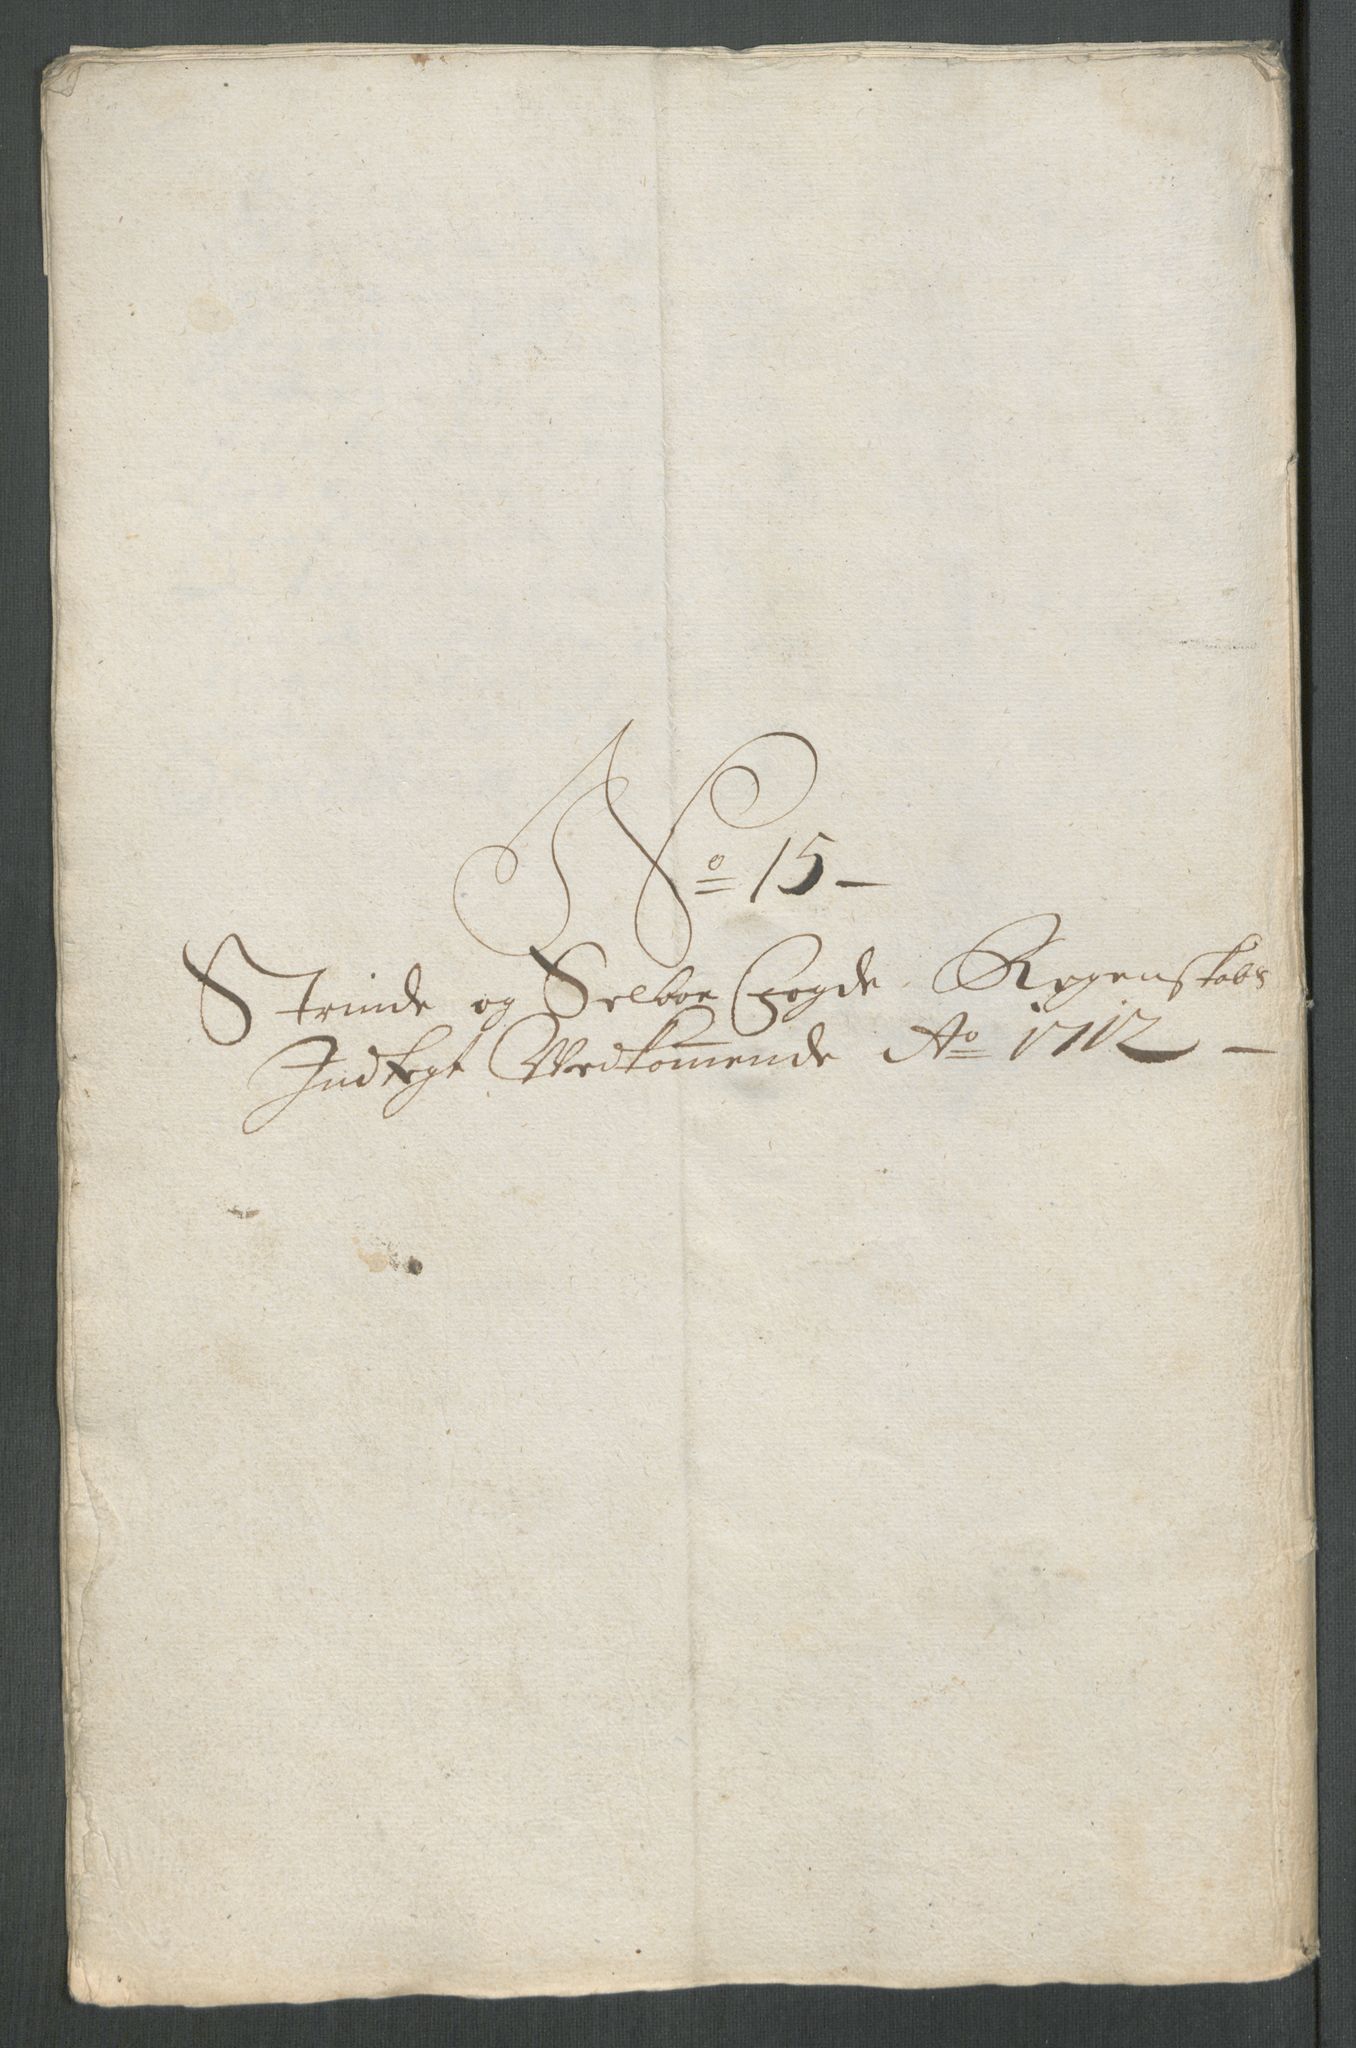 No 15 -
Strinde og Selboe Fogde Regenskabs
Indtegt Vedkom̄ende Ao 1712 -